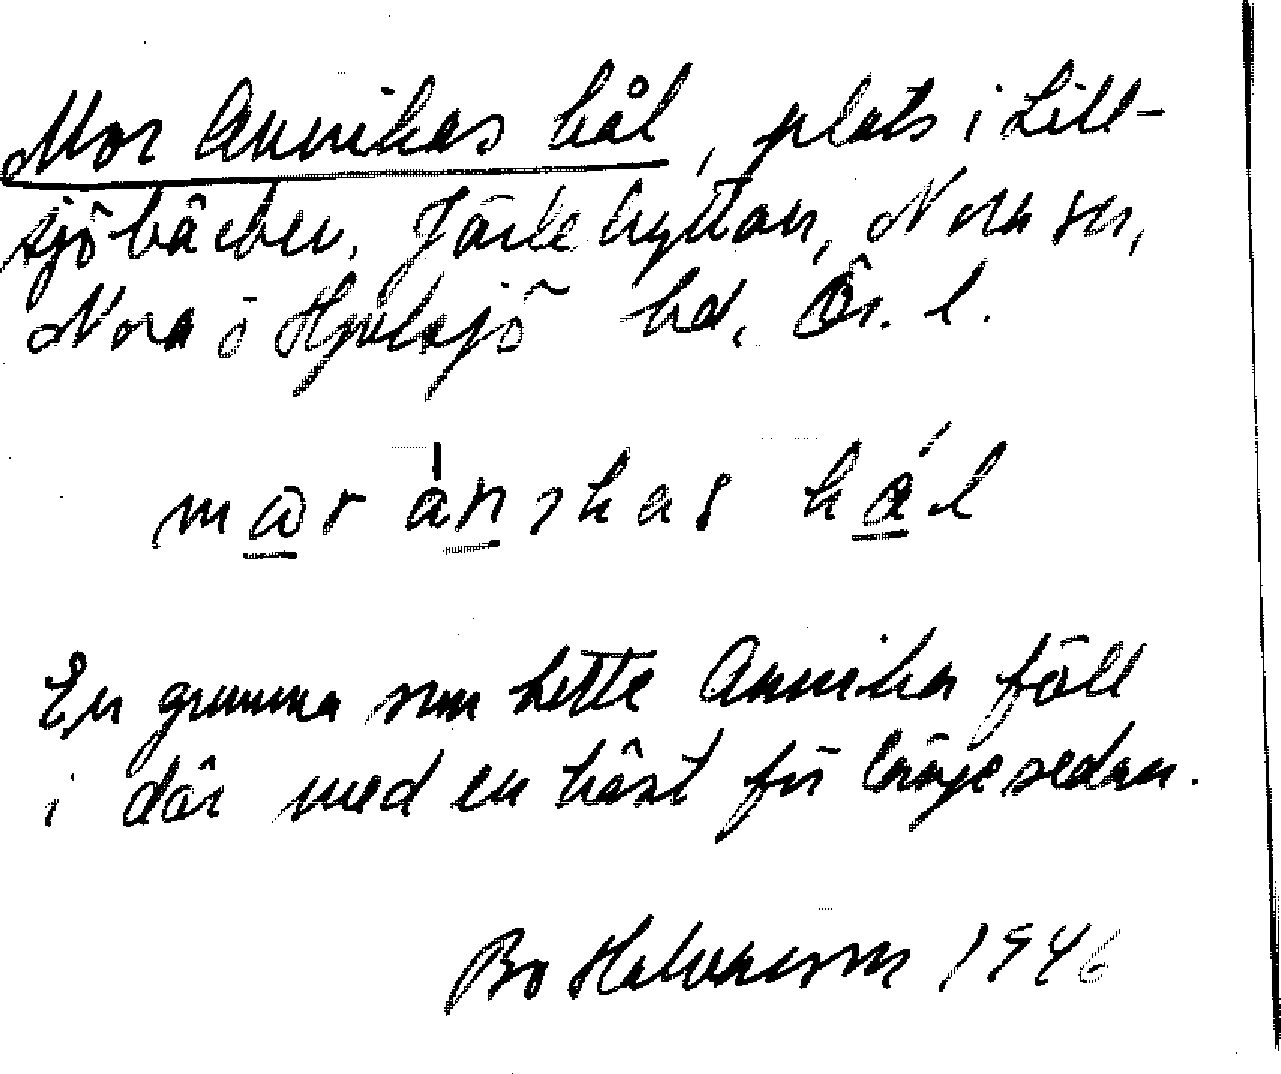 Mor Annikas hål, plats i Lill-
sjöbäcken, Järlehyttan, Nora sn,
Nora o Hjulsjö hd, Ör. l.
mɷr ànikas hål
En gumma som hette Annika föll
i där med en häst för länge sedan.
Bo Halvarsson 1946